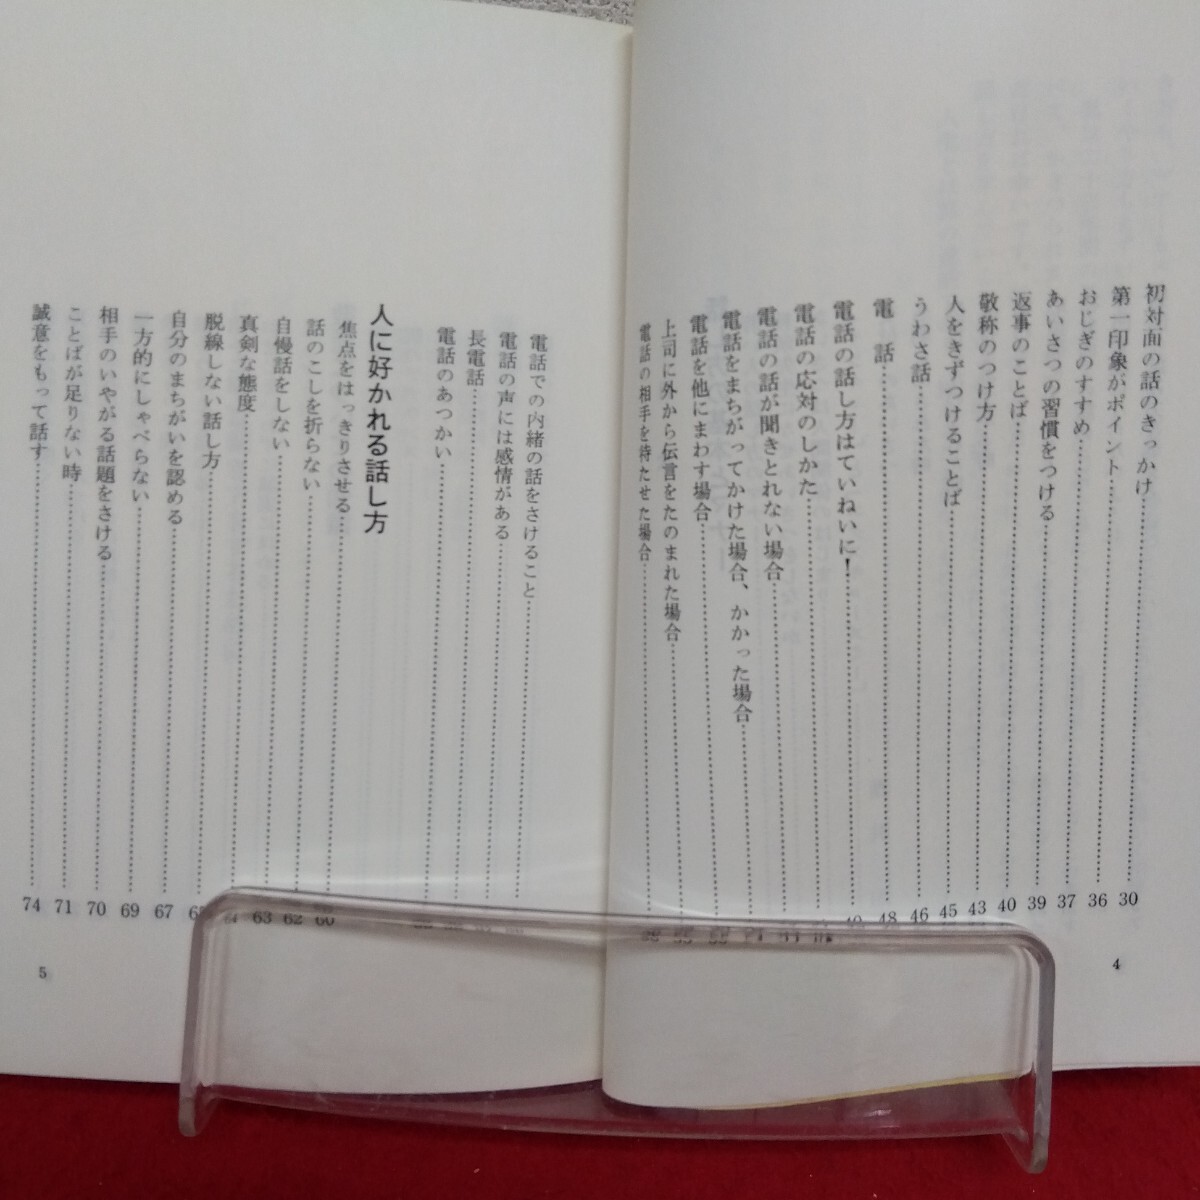 初対面の話のきっかけ……30
第一印象がポイント……36
おじぎのすすめ……37
あいさつの習慣をつける……39
返事のことば……40
敬称のつけ方……43
人をきずつけることば……45
うわさ話……46
電　話……48
電話の話し方はていねいに！……
電話の応対のしかた……
電話の話が聞きとれない場合……
電話をまちがってかけた場合、かかった場合……
電話を他にまわす場合……
上司に外から伝言をたのまれた場合……
電話の相手を待たせた場合……
4
電話での内緒の話をさけること……
電話の声には感情がある……
長電話……
電話のあつかい……
人に好かれる話し方
焦点をはっきりさせる……60
話のこしを折らない……62
自慢話をしない……63
真剣な態度……
脱線しない話し方……
自分のまちがいを認める……67
一方的にしゃべらない……69
相手のいやがる話題をさける……70
ことばが足りない時……71
誠意をもって話す……74
5